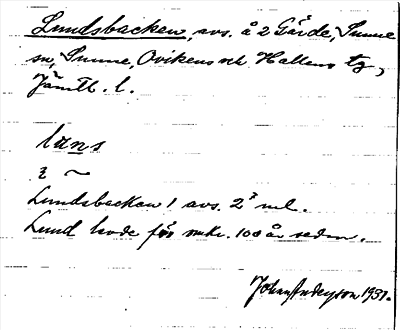 Lundsbacken, avs. å 2 Gärde, Sunne
sn, Sunne, Ovikens och Hallens tg,
Jämtl. l.
lụns
Lundsbacken 1 avs. 2 ml.
Lund bodde för mkr. 100 år sedan.
Johan Anderzon 1931.